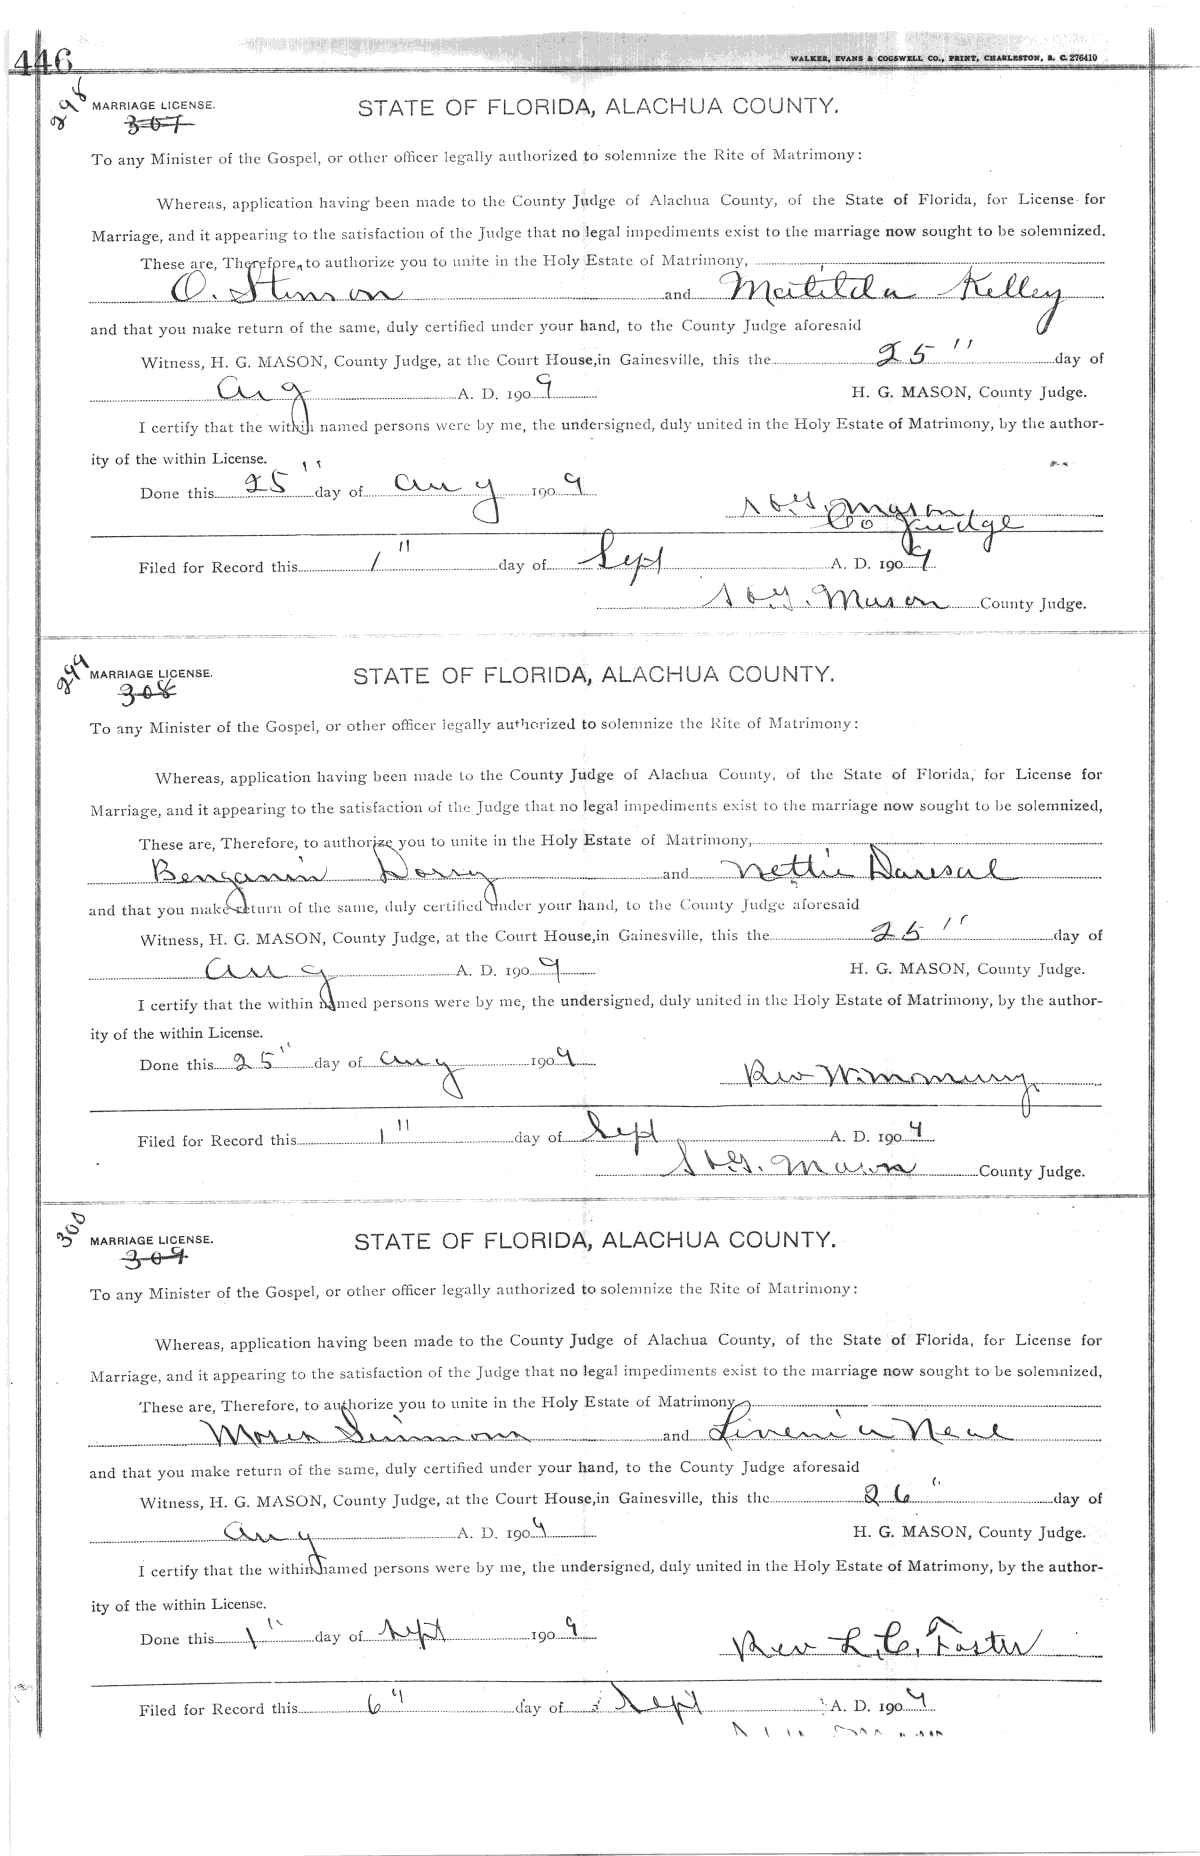 446
WALKER, EVANS & COGSWELL CO., PRINT, CHARLESTON, S. C. 276410
298
MARRIAGE LICENSE.
307
STATE OF FLORIDA, ALACHUA COUNTY.
To any Minister of the Gospel, or other officer legally authorized to solemnize the Rite of Matrimony:
Whereas, application having been made to the County Judge of Alachua County, of the State of Florida, for License for
Marriage, and it appearing to the satisfaction of the Judge that no legal impediments exist to the marriage now sought to be solemnized,
These are, Therefore, to authorize you to unite in the Holy Estate of Matrimony,
O. Stinson and Matilda Kelley
and that you make return of the same, duly certified under your hand, to the County Judge aforesaid
Witness, H. G. MASON, County Judge, at the Court House, in Gainesville, this the 25" day of
Aug A. D. 1909 H. G. MASON, County Judge.
I certify that the within named persons were by me, the undersigned, duly united in the Holy Estate of Matrimony, by the author-
ity of the within License.
Done this 25" day of Aug 1909 H.G. Mason
Co Judge
Filed for Record this 1" day of Sept A. D. 1909
H.G. Mason County Judge.
299
MARRIAGE LICENSE.
308
STATE OF FLORIDA, ALACHUA COUNTY.
To any Minister of the Gospel, or other officer legally authorized to solemnize the Rite of Matrimony:
Whereas, application having been made to the County Judge of Alachua County, of the State of Florida, for License for
Marriage, and it appearing to the satisfaction of the Judge that no legal impediments exist to the marriage now sought to be solemnized,
These are, Therefore, to authorize you to unite in the Holy Estate of Matrimony,
Benjamin Dorry and Nettie
and that you make return of the same, duly certified under your hand, to the County Judge aforesaid
Witness, H. G. MASON, County Judge, at the Court House, in Gainesville, this the 25" day of
Aug A. D. 1909 H. G. MASON, County Judge.
I certify that the within named persons were by me, the undersigned, duly united in the Holy Estate of Matrimony, by the author-
ity of the within License.
Done this 25" day of Aug 1909 Rev
Filed for Record this 1" day of Sept A. D. 1909
H.G. Mason County Judge.
300
MARRIAGE LICENSE.
309
STATE OF FLORIDA, ALACHUA COUNTY.
To any Minister of the Gospel, or other officer legally authorized to solemnize the Rite of Matrimony:
Whereas, application having been made to the County Judge of Alachua County, of the State of Florida, for License for
Marriage, and it appearing to the satisfaction of the Judge that no legal impediments exist to the marriage now sought to be solemnized,
These are, Therefore, to authorize you to unite in the Holy Estate of Matrimony,
Moses Simmons and Neal
and that you make return of the same, duly certified under your hand, to the County Judge aforesaid
Witness, H. G. MASON, County Judge, at the Court House, in Gainesville, this the 26" day of
Aug A. D. 1909 H. G. MASON, County Judge.
I certify that the within named persons were by me, the undersigned, duly united in the Holy Estate of Matrimony, by the author-
ity of the within License.
Done this 1" day of Sept 1909 Rev L. C. Foster
Filed for Record this 6" day of Sept A. D. 1909